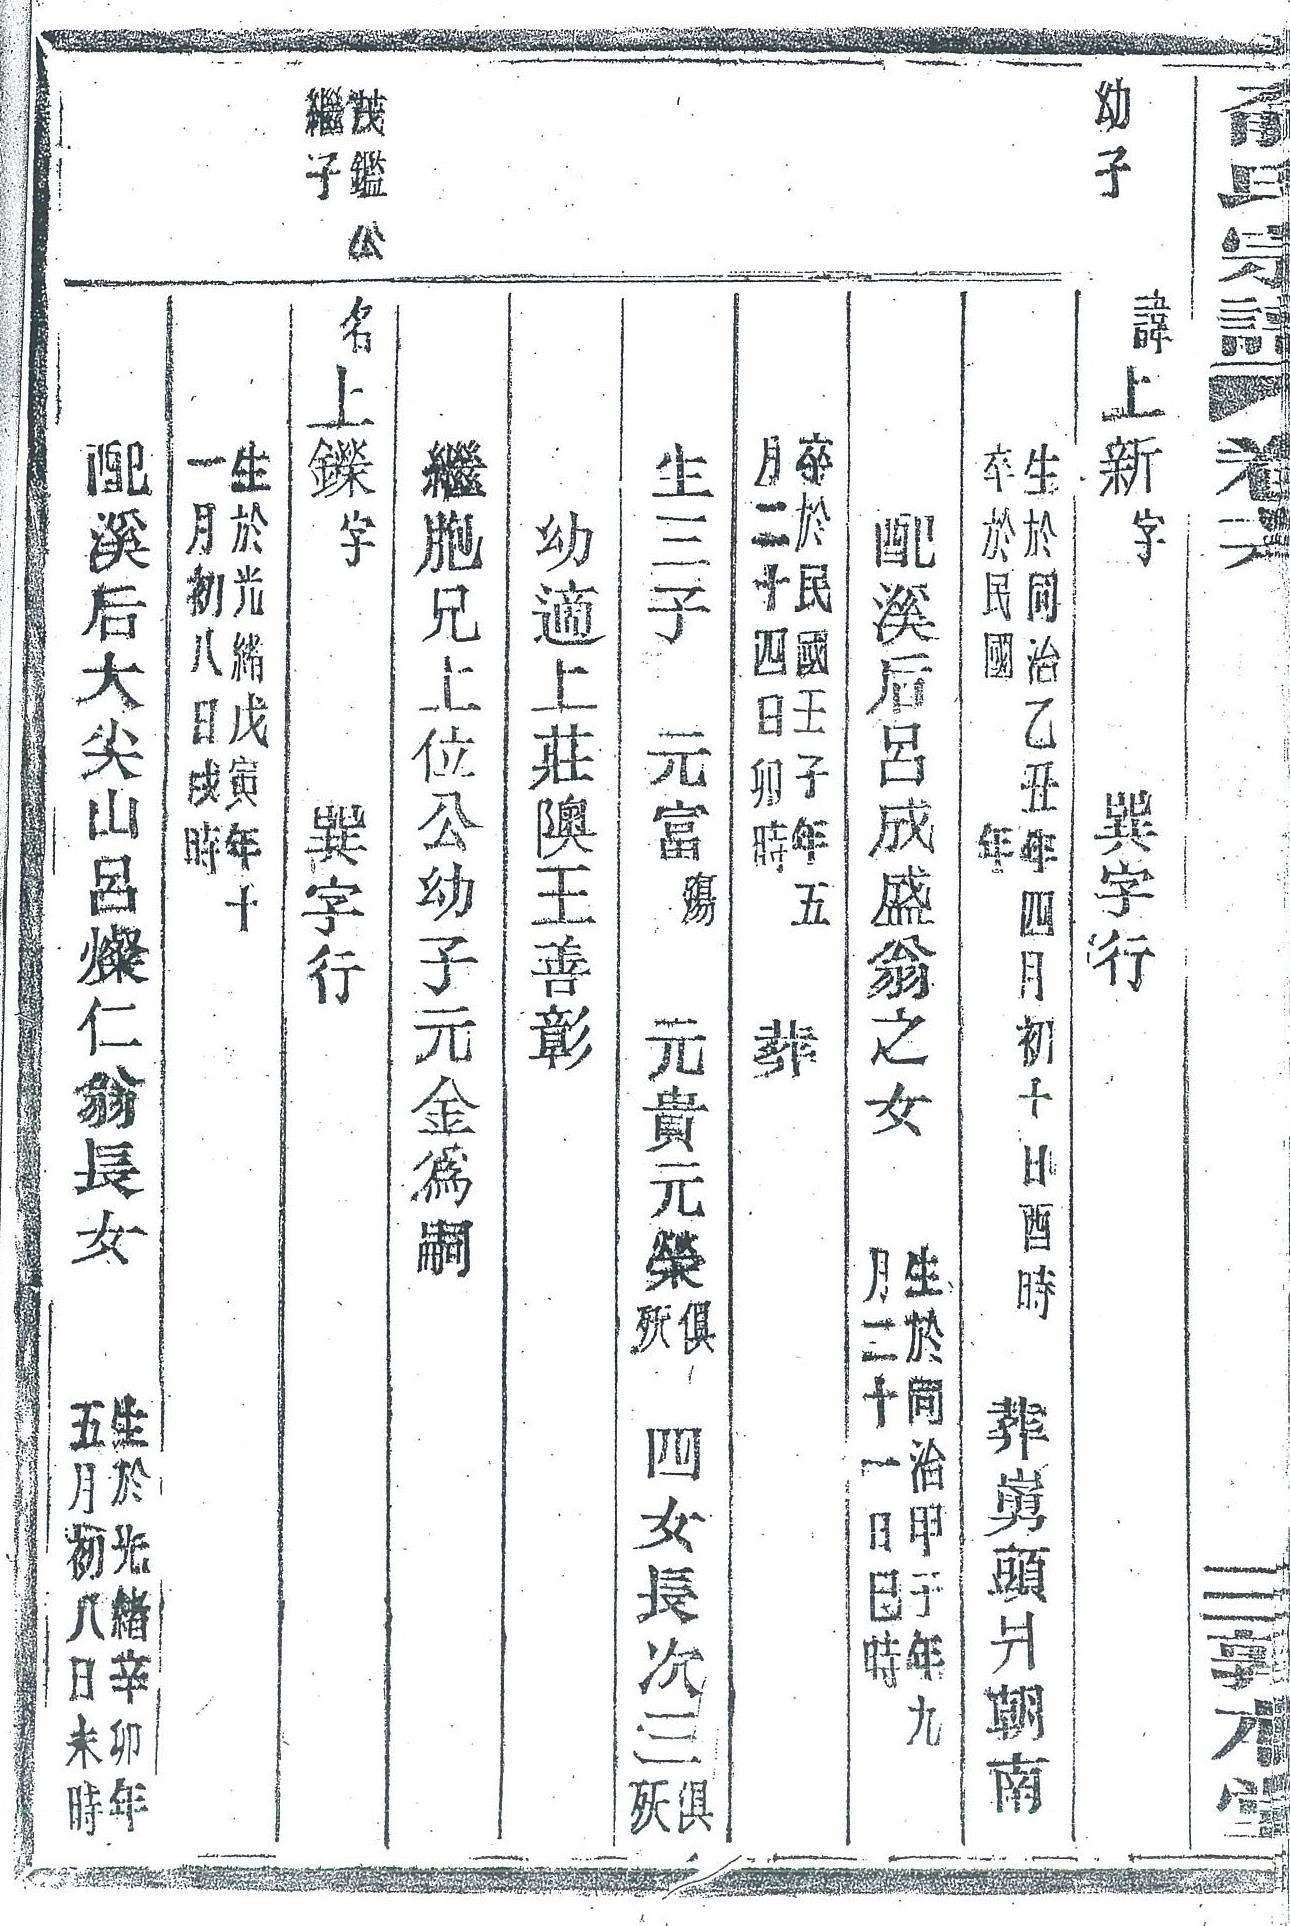 氏宗譜 卷六
幼子
諱上新字 巽字行
生於同治乙丑年四月初十日酉時
卒於民國 年
葬 頭 朝南
配溪后呂成盛翁之女
生於同治甲子年九
月二十一日巳時
卒於民國壬子年五
月二十四日卯時
葬
生三子 元富殤 元貴元榮俱殀 四女長次三俱殀
幼適上莊隩王善彰
繼胞兄上位公幼子元金為嗣
茂鑑公
繼子
名上鑠字 巽字行
生於光緒戊寅年十
一月初八日戌時
配溪后大尖山呂燦仁翁長女
生於光緒辛卯年
五月初八日未時